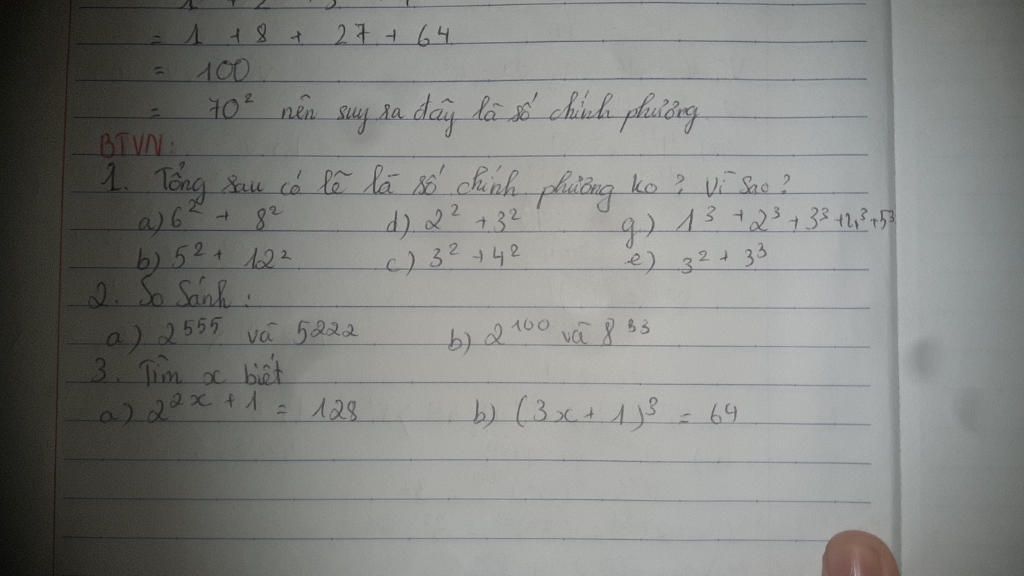 = 1 + 8 + 27 + 64
= 100
= 70² nên suy ra đây là số chính phưởng
BTVN:
1. Tổng sau có lẽ là số chính phưởng ko? Vì sao?
a) 6² + 8² d) 2² + 3² g.) 1³ + 2³ + 3³ + 4³ + 5³
b) 5² + 12² c) 3² + 4² e) 3² + 3³
2. So Sánh:
a) 2⁵⁵⁵ và 5222 b) 2¹⁰⁰ và 8³³
3. Tìm x biết
a) 2²ˣ⁺¹ = 128 b) (3x + 1)³ = 64